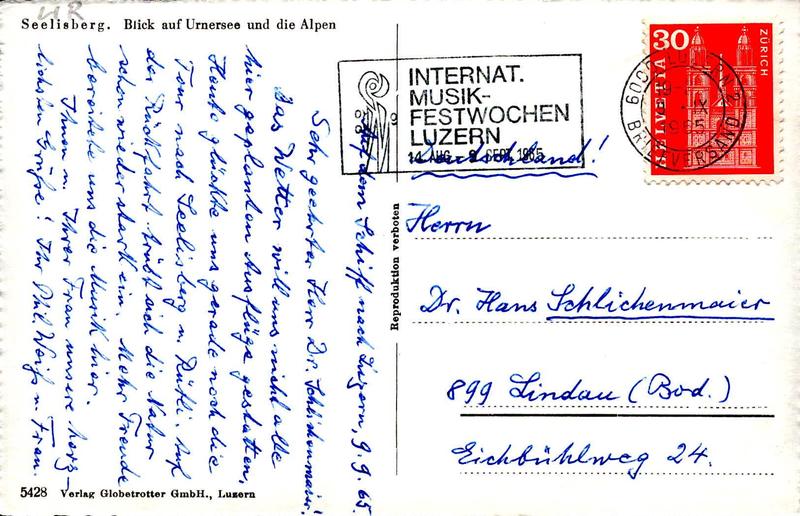 UR
Seelisberg. Blick auf Urnersee und die Alpen
Auf dem Schiff nach Luzern, 9.9.65.
Sehr geehrter Herr Dr. Schlichenmaier!
Das Wetter will uns nicht alle
hier geplanten Ausflüge gestatten,
Heute glückte uns gerade noch die
Tour nach Seelisberg u. Rütli. Auf
der Rückfahrt trübt sich die Natur
schon wieder stark ein. Mehr Freude
bereitete uns die Musik hier.
Ihnen u. Ihrer Frau unsere herz-
lichsten Grüße! Ihr Phil Weiß u. Frau.
5428 Verlag Globetrotter GmbH., Luzern
Reproduktion verboten
INTERNAT.
MUSIK-
FESTWOCHEN
LUZERN
14. AUG. - 9. SEPT. 1965
30
HELVETIA
ZÜRICH
6000 LUZERN 2
IX
1965
BRIEFVERSAND
Deutschland!
Herrn
Dr. Hans Schlichenmaier
899 Lindau (Bod.)
Eichbühlweg 24.